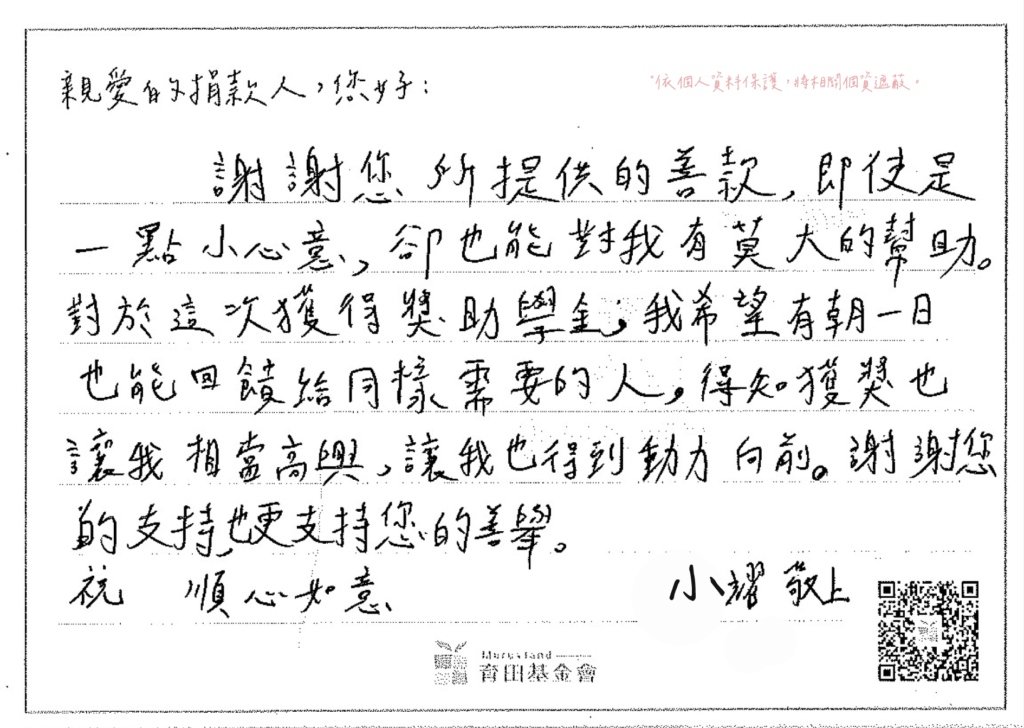 親愛的捐款人，您好：
*依個人資料保護，將相關個資遮蔽。
謝謝您所提供的善款，即使是
一點小心意，卻也能對我有莫大的幫助。
對於這次獲得獎助學金，我希望有朝一日
也能回饋給同樣需要的人。得知獲獎也
讓我相當高興，讓我也得到動力向前。謝謝您
的支持，也更支持您的善舉。
祝 順心如意
小耀 敬上
育田基金會